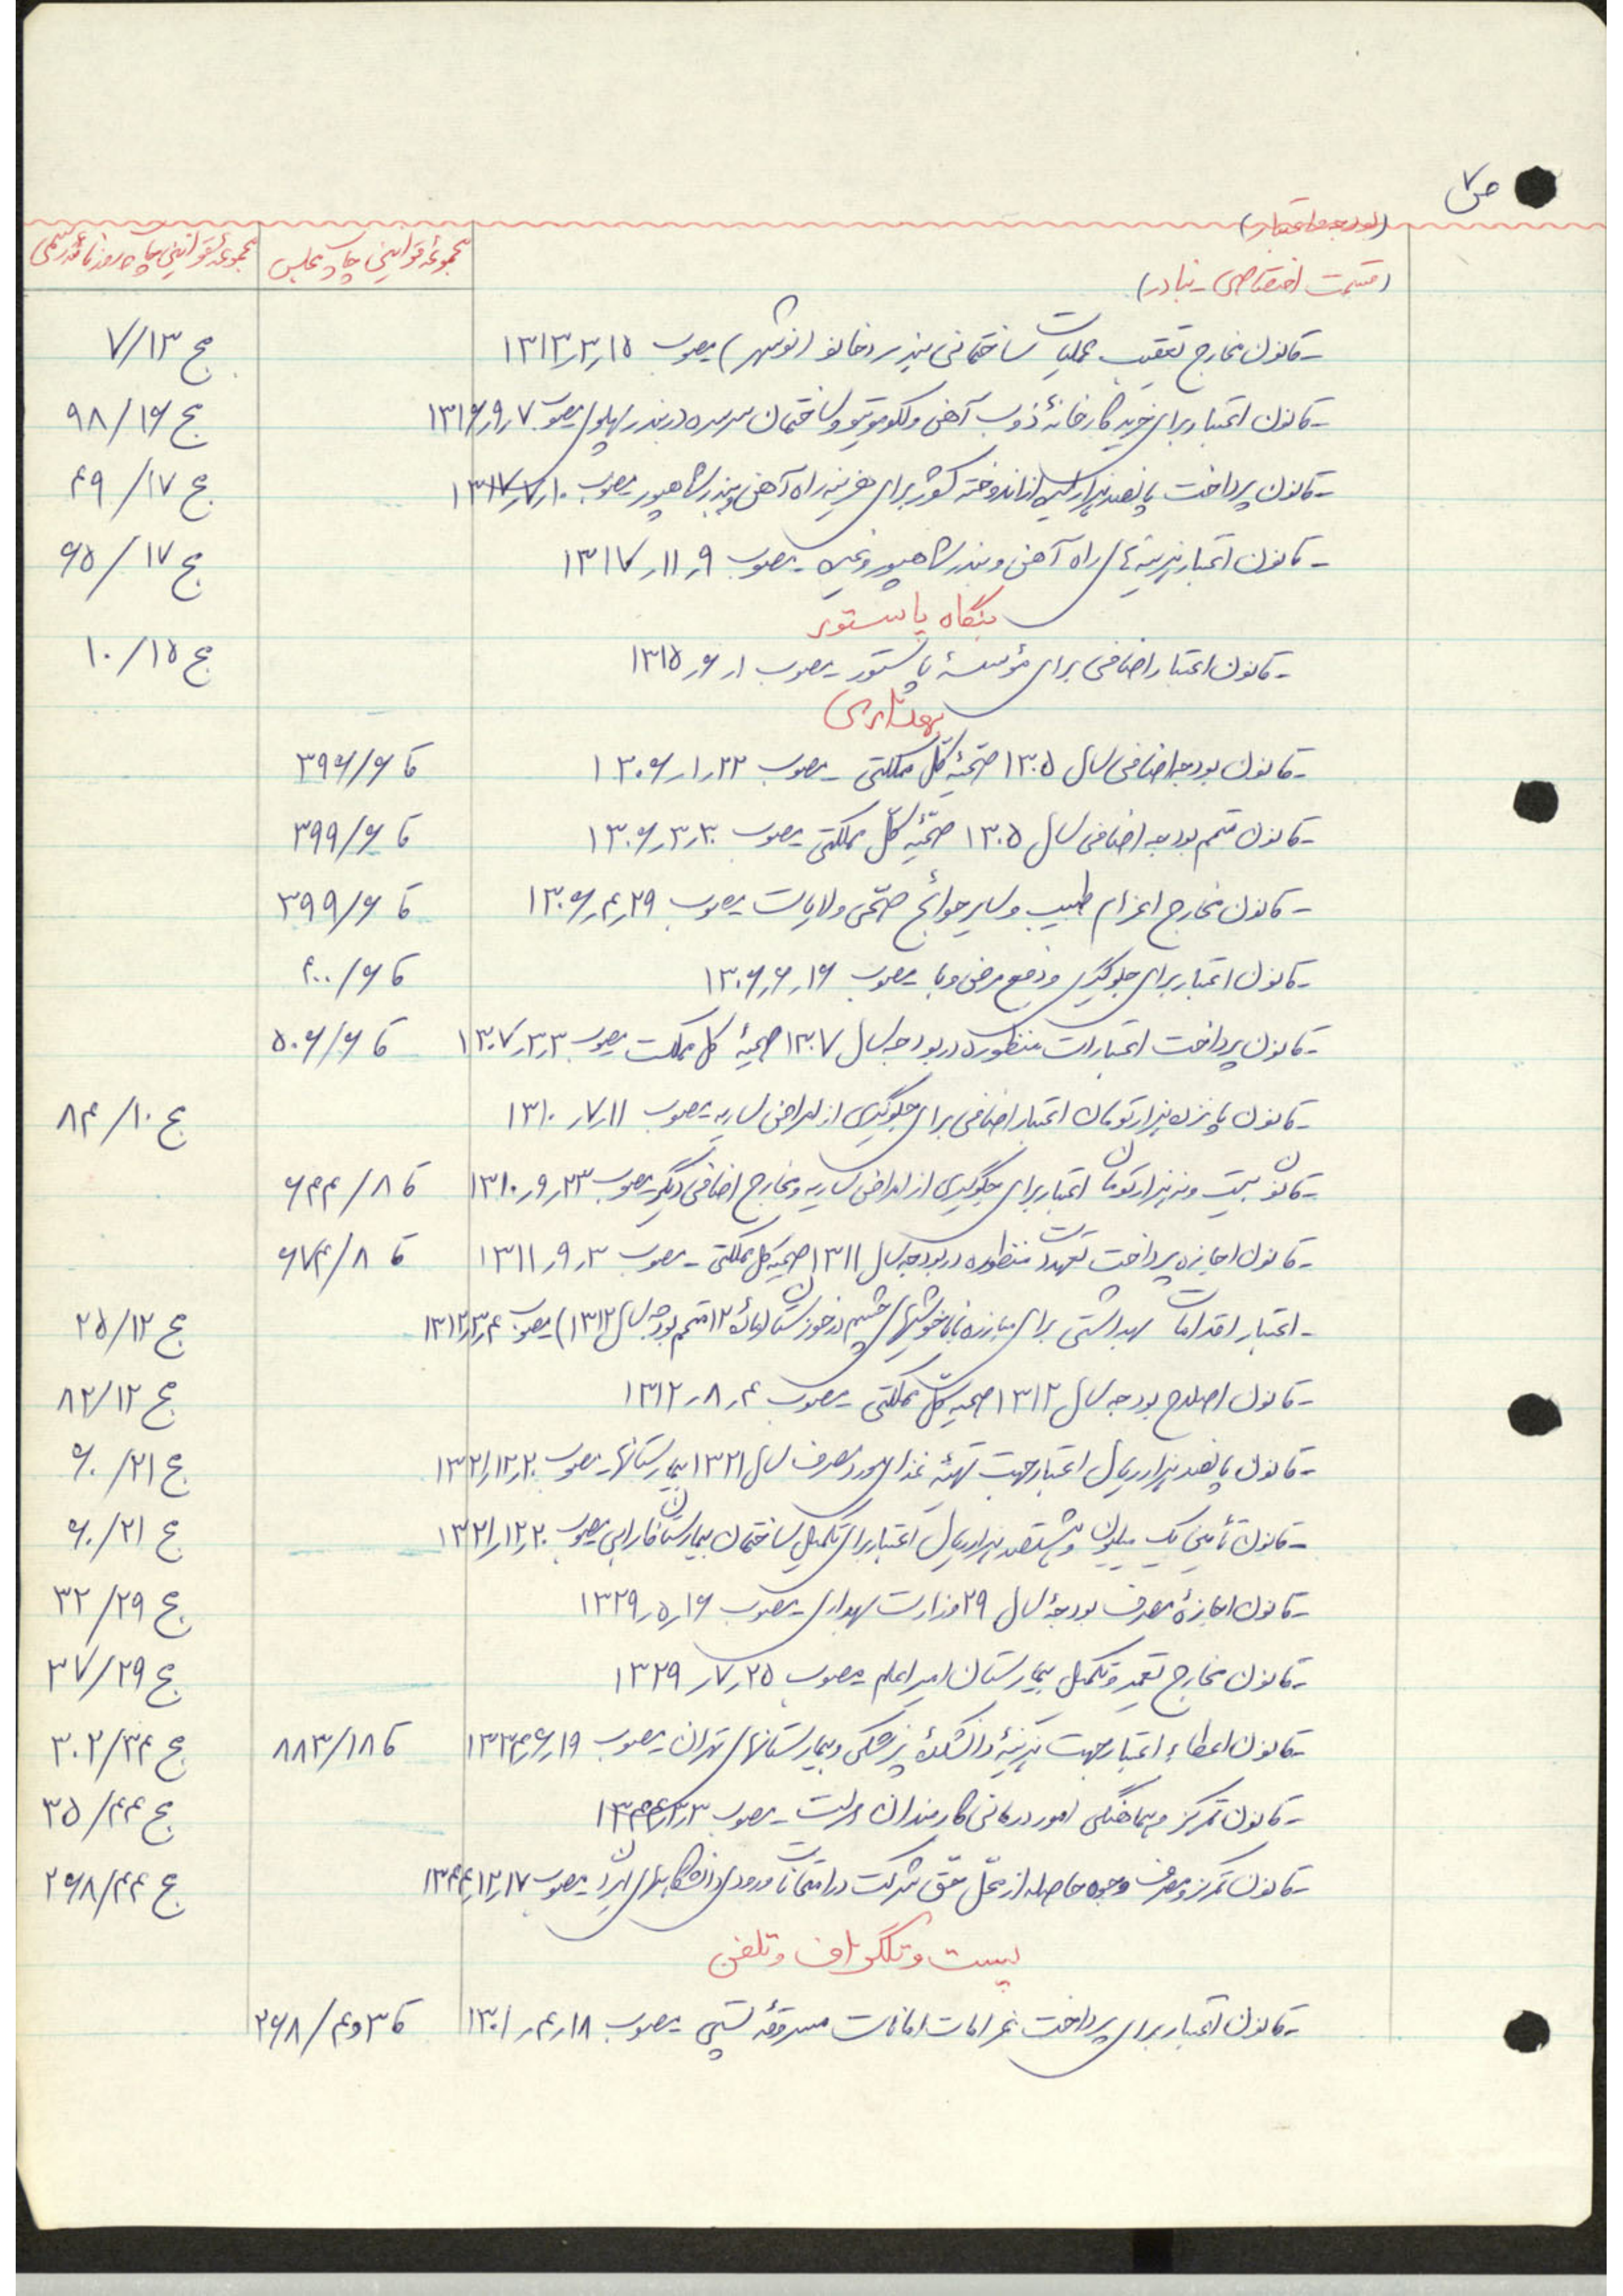 ص ۷
(بودجه و اعتبار)
(قسمت اختصاصی - بنادر)
مجموعه قوانین چاپ مجلس
مجموعه قوانین چاپ روزنامه رسمی
- قانون مخارج تعقیب عملیات ساختمانی بندر ده‌نو (نوشهر) مصوب ۱۳۱۳٫۳٫۱۵ ج ۷/۱۳
- قانون اعتبار برای خرید کارخانهٔ ذوب آهن ولکوموتیو و ساختمان سرسره در بندر پهلوی مصوب ۱۳۱۶٫۹٫۷ ج ۹۸/۱۶
- قانون پرداخت پانصد هزار لیره از اندوخته کشور برای هزینه راه آهن و بندر شاهپور مصوب ۱۳۱۷٫۷٫۱۰ ج ۴۹/۱۷
- قانون اعتبار هزینه‌های راه آهن و بندر شاهپور و غیره - مصوب ۱۳۱۷٫۱۱٫۹ ج ۶۵/۱۷
بنگاه پاستور
- قانون اعتبار اضافی برای مؤسسهٔ پاستور - مصوب ۱۳۱۵٫۶٫۱ ج ۱۰/۱۵
بهداری
- قانون بودجه اضافی سال ۱۳۰۵ صحیّهٔ کل مملکتی - مصوب ۱۳۰۶٫۱٫۲۲ تا ۳۹۶/۶
- قانون متمم بودجه اضافی سال ۱۳۰۵ صحیّهٔ کلّ مملکتی مصوب ۱۳۰۶٫۳٫۳۰ تا ۳۹۹/۶
- قانون مخارج اعزام طبیب و سایر حوائج صحّی ولایات مصوب ۱۳۰۶٫۴٫۲۹ تا ۳۹۹/۶
- قانون اعتبار برای جلوگیری و دفع مرض وبا - مصوب ۱۳۰۶٫۶٫۱۶ تا ۴۰۰/۶
- قانون پرداخت اعتبارات منظوره در بودجه سال ۱۳۰۷ صحیهٔ کل مملکت مصوب ۱۳۰۷٫۳٫۳ تا ۵۰۶/۶
- قانون پانزده هزار تومان اعتبار اضافی برای جلوگیری از امراض ساریه - مصوب ۱۳۱۰٫۷٫۱۱ ج ۸۴/۱۰
- قانون بیست و نه هزار تومان اعتبار برای جلوگیری از امراض ساریه و مخارج اضافی دیگر مصوب ۱۳۱۰٫۹٫۲۳ تا ۶۴۴/۸
- قانون اجازه پرداخت تعهدات منظوره در بودجه سال ۱۳۱۱ صحیه کل مملکتی - مصوب ۱۳۱۱٫۹٫۳ تا ۶۷۴/۸
- اعتبار اقدامات بهداشتی برای مبارزه با ناخوشیهای چشم در خوزستان (مادهٔ ۱۲ متمم بودجه سال ۱۳۱۲) مصوب ۱۳۱۲٫۳٫۴ ج ۲۵/۱۲
- قانون اصلاح بودجه سال ۱۳۱۲ صحیه کلّ مملکتی - مصوب ۱۳۱۲٫۸٫۴ ج ۸۲/۱۲
- قانون پانصد هزار ریال اعتبار جهت تهیّه غذای مورد مصرف سال ۱۳۲۱ بیمارستانها - مصوب ۱۳۲۱٫۱۲٫۲۰ ج ۶۰/۲۱
- قانون تأمین یک میلیون و هشتصد هزار ریال اعتبار برای تکمیل ساختمان بیمارستان فارابی مصوب ۱۳۲۱٫۱۲٫۲۰ ج ۶۰/۲۱
- قانون اجازهٔ مصرف بودجهٔ سال ۲۹ وزارت بهداری - مصوب ۱۳۲۹٫۵٫۱۶ ج ۳۲/۲۹
- قانون مخارج تعمیر و تکمیل بیمارستان امیر اعلم - مصوب ۱۳۲۹٫۷٫۲۵ ج ۳۷/۲۹
- قانون اعطاء اعتبار جهت هزینهٔ دانشکدهٔ پزشکی و بیمارستانهای تهران - مصوب ۱۳۳۴٫۶٫۱۹ تا ۸۸۳/۱۸ ج ۳۰۲/۳۴
- قانون تمرکز و هماهنگی امور درمانی کارمندان دولت - مصوب ج ۳۵/۴۴
- قانون تمرکز و مصرف وجوه حاصله از محّل حقّ شرکت در امتحانات ورودی دانشگاههای ایران - مصوب ۱۳۴۴٫۱۲٫۱۷ ج ۲۶۸/۴۴
پست و تلگراف و تلفن
- قانون اعتبار برای پرداخت غرامات امانات مسروقهٔ پستی - مصوب ۱۳۰۱٫۴٫۱۸ تا ۳و۴/۲۶۸